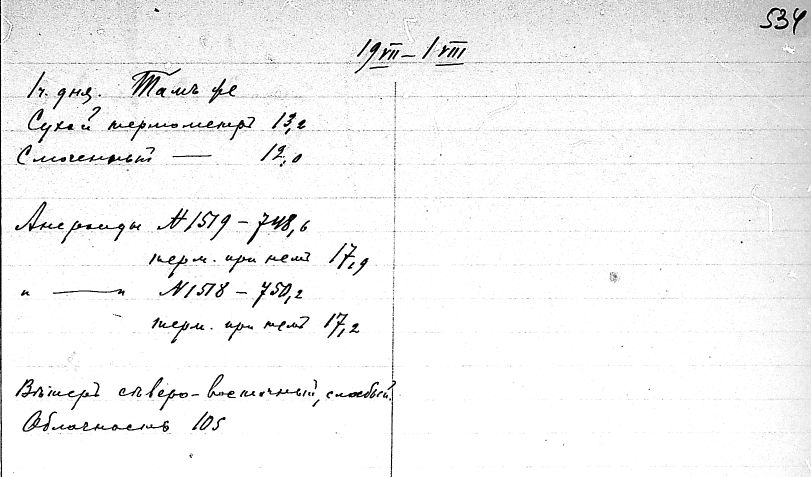 534
19 VII – 1 VIII
1 ч. дня. Тамъ же
Сухой термометръ 13,2
Смоченный — 12,0
Анероиды N 1519 – 748,6
терм. при немъ 17,9
" — " N 1518 – 750,2
терм. при немъ 17,2
Вѣтеръ сѣверо-восточный, слабый.
Облачность 10S